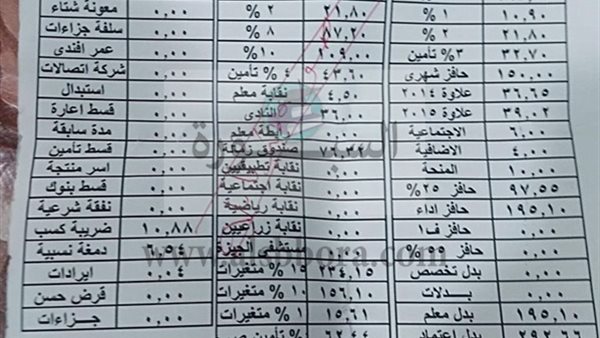 ١ % ١٠,٩٠
٢ % ٢١,٨٠
٣% تأمين ٣٢,٧٠
حافز شهرى ١٥٠,٠٠
علاوة ٢٠١٤ ٣٦,٦٥
علاوة ٢٠١٥ ٣٩,٠٢
الاجتماعية ٦,٠٠
الاضافية ٤,٠٠
المنحة ١٠,٠٠
حافز ٢٥% ٩٧,٥٥
حافز اداء ١٩٥,١٠
حافز ف١ ٠,٠٠
حافز ٥٥% ٠,٠٠
بدل تخصص ٠,٠٠
بدلات ٠,٠٠
بدل معلم ١٩٥,١٠
بدل اعتماد ٢٩٢,٦٦
٢ % ٢١,٨٠
٨ % ٨٧,٢٠
١٠% ١٠٩,٠٠
٤ % تأمين ٤٣,٦٠
نقابة معلم ٤,٥٠
النادى ٣٦,٠٠
رابطة معلم ٠,٠٠
صندوق زمالة
نقابة تطبيقيين ٠,٠٠
نقابة اجتماعية ٠,٠٠
نقابة رياضية ٠,٠٠
نقابة زراعيين ٠,٠٠
مستشفى الجيزة
١٥ % متغيرات ٢٣٤,١٥
١٠ % متغيرات ١٥٦,١٠
١ % متغيرات ١٥,٦١
٦٢,٤٤
معونة شتاء ٠,٠٠
سلفة جزاءات ٠,٠٠
عمر افندى ٠,٠٠
شركة اتصالات ٠,٠٠
استبدال ٠,٠٠
قسط اعارة ٠,٠٠
مدة سابقة ٠,٠٠
قسط تأمين ٠,٠٠
اسر منتجة ٠,٠٠
قسط بنوك ٠,٠٠
نفقة شرعية ٠,٠٠
ضريبة كسب ١٠,٨٨
دمغة نسبية ٦,٥٤
ايرادات ٠,٠٤
قرض حسن ٠,٠٠
جزاءات ٠,٠٠
السبورة
www.alsbbora.com